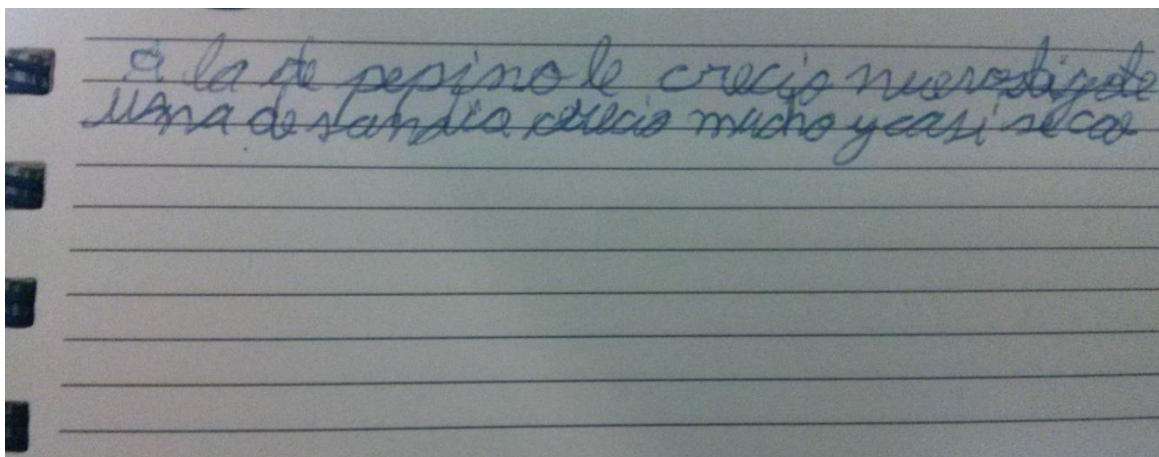 a la de pepino le crecio nuevo
una de sandia crecio mucho y casi se cae